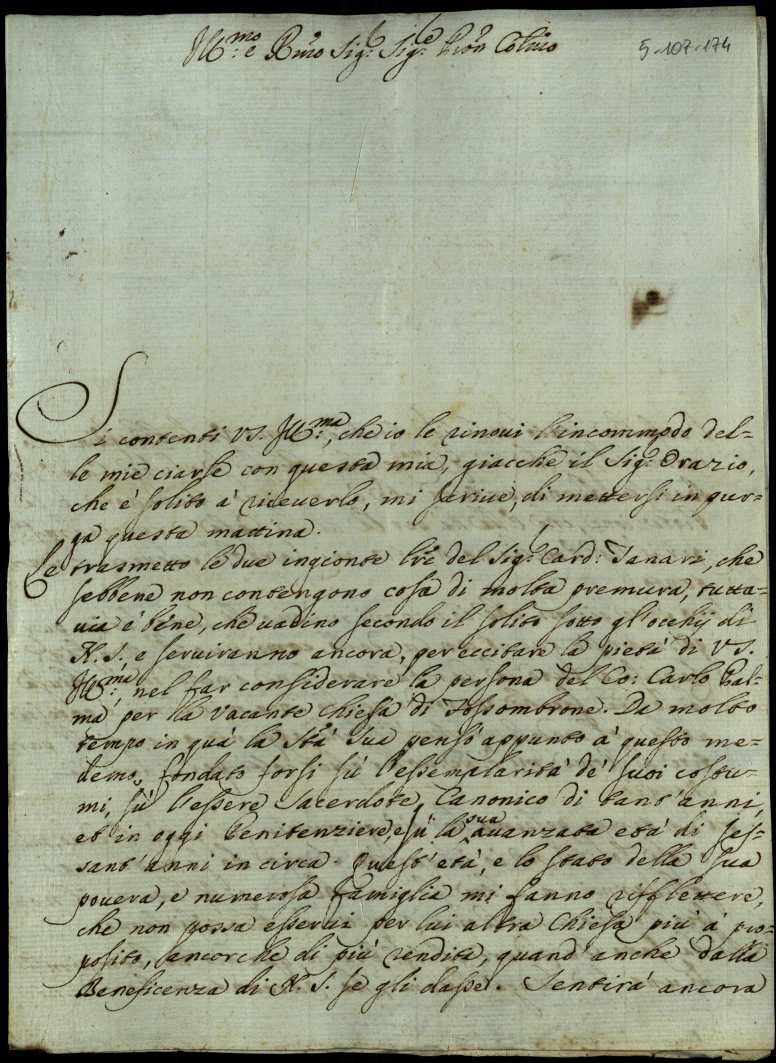 Ill:mo e Rmo Sig:r Sig:re Pron Colmo
5-107-174
Si contenti VS. Ill:ma, che io le rinovi l'incommodo del-
le mie ciarle con questa mia, giacche il Sig:r Orazio,
che è solito à riceverlo, mi scrive, di mettersi in pur-
ga questa mattina.
Le trasmetto le due ingionte lre del Sig:r Card: Tanari, che
sebbene non contengono cosa di molta premura, tutta-
via è bene, che vadino secondo il solito sotto gl'occhij di
N. S. e serviranno ancora, per eccitare la pietà di VS.
Ill:ma, nel far considerare la persona del Co: Carlo Pal-
ma per la vacante Chiesa di Fossombrone. Da molto
tempo in quà la Stà Sua pensò appunto à questo me-
demo, fondato forsi sù l'essemplarità de' suoi costu-
mi, sù l'essere Sacerdote, Canonico di tant'anni,
et in oggi Penitenziere, e sù la sua avanzata età di ses-
sant'anni in circa. Quest'età, e lo stato della sua
povera, e numerosa famiglia mi fanno rifflettere,
che non possa esservi per lui altra Chiesa più à pro-
posito, ancorche di più rendita, quand'anche dalla
Beneficenza di N. S. se gli dasse. Sentirà ancora